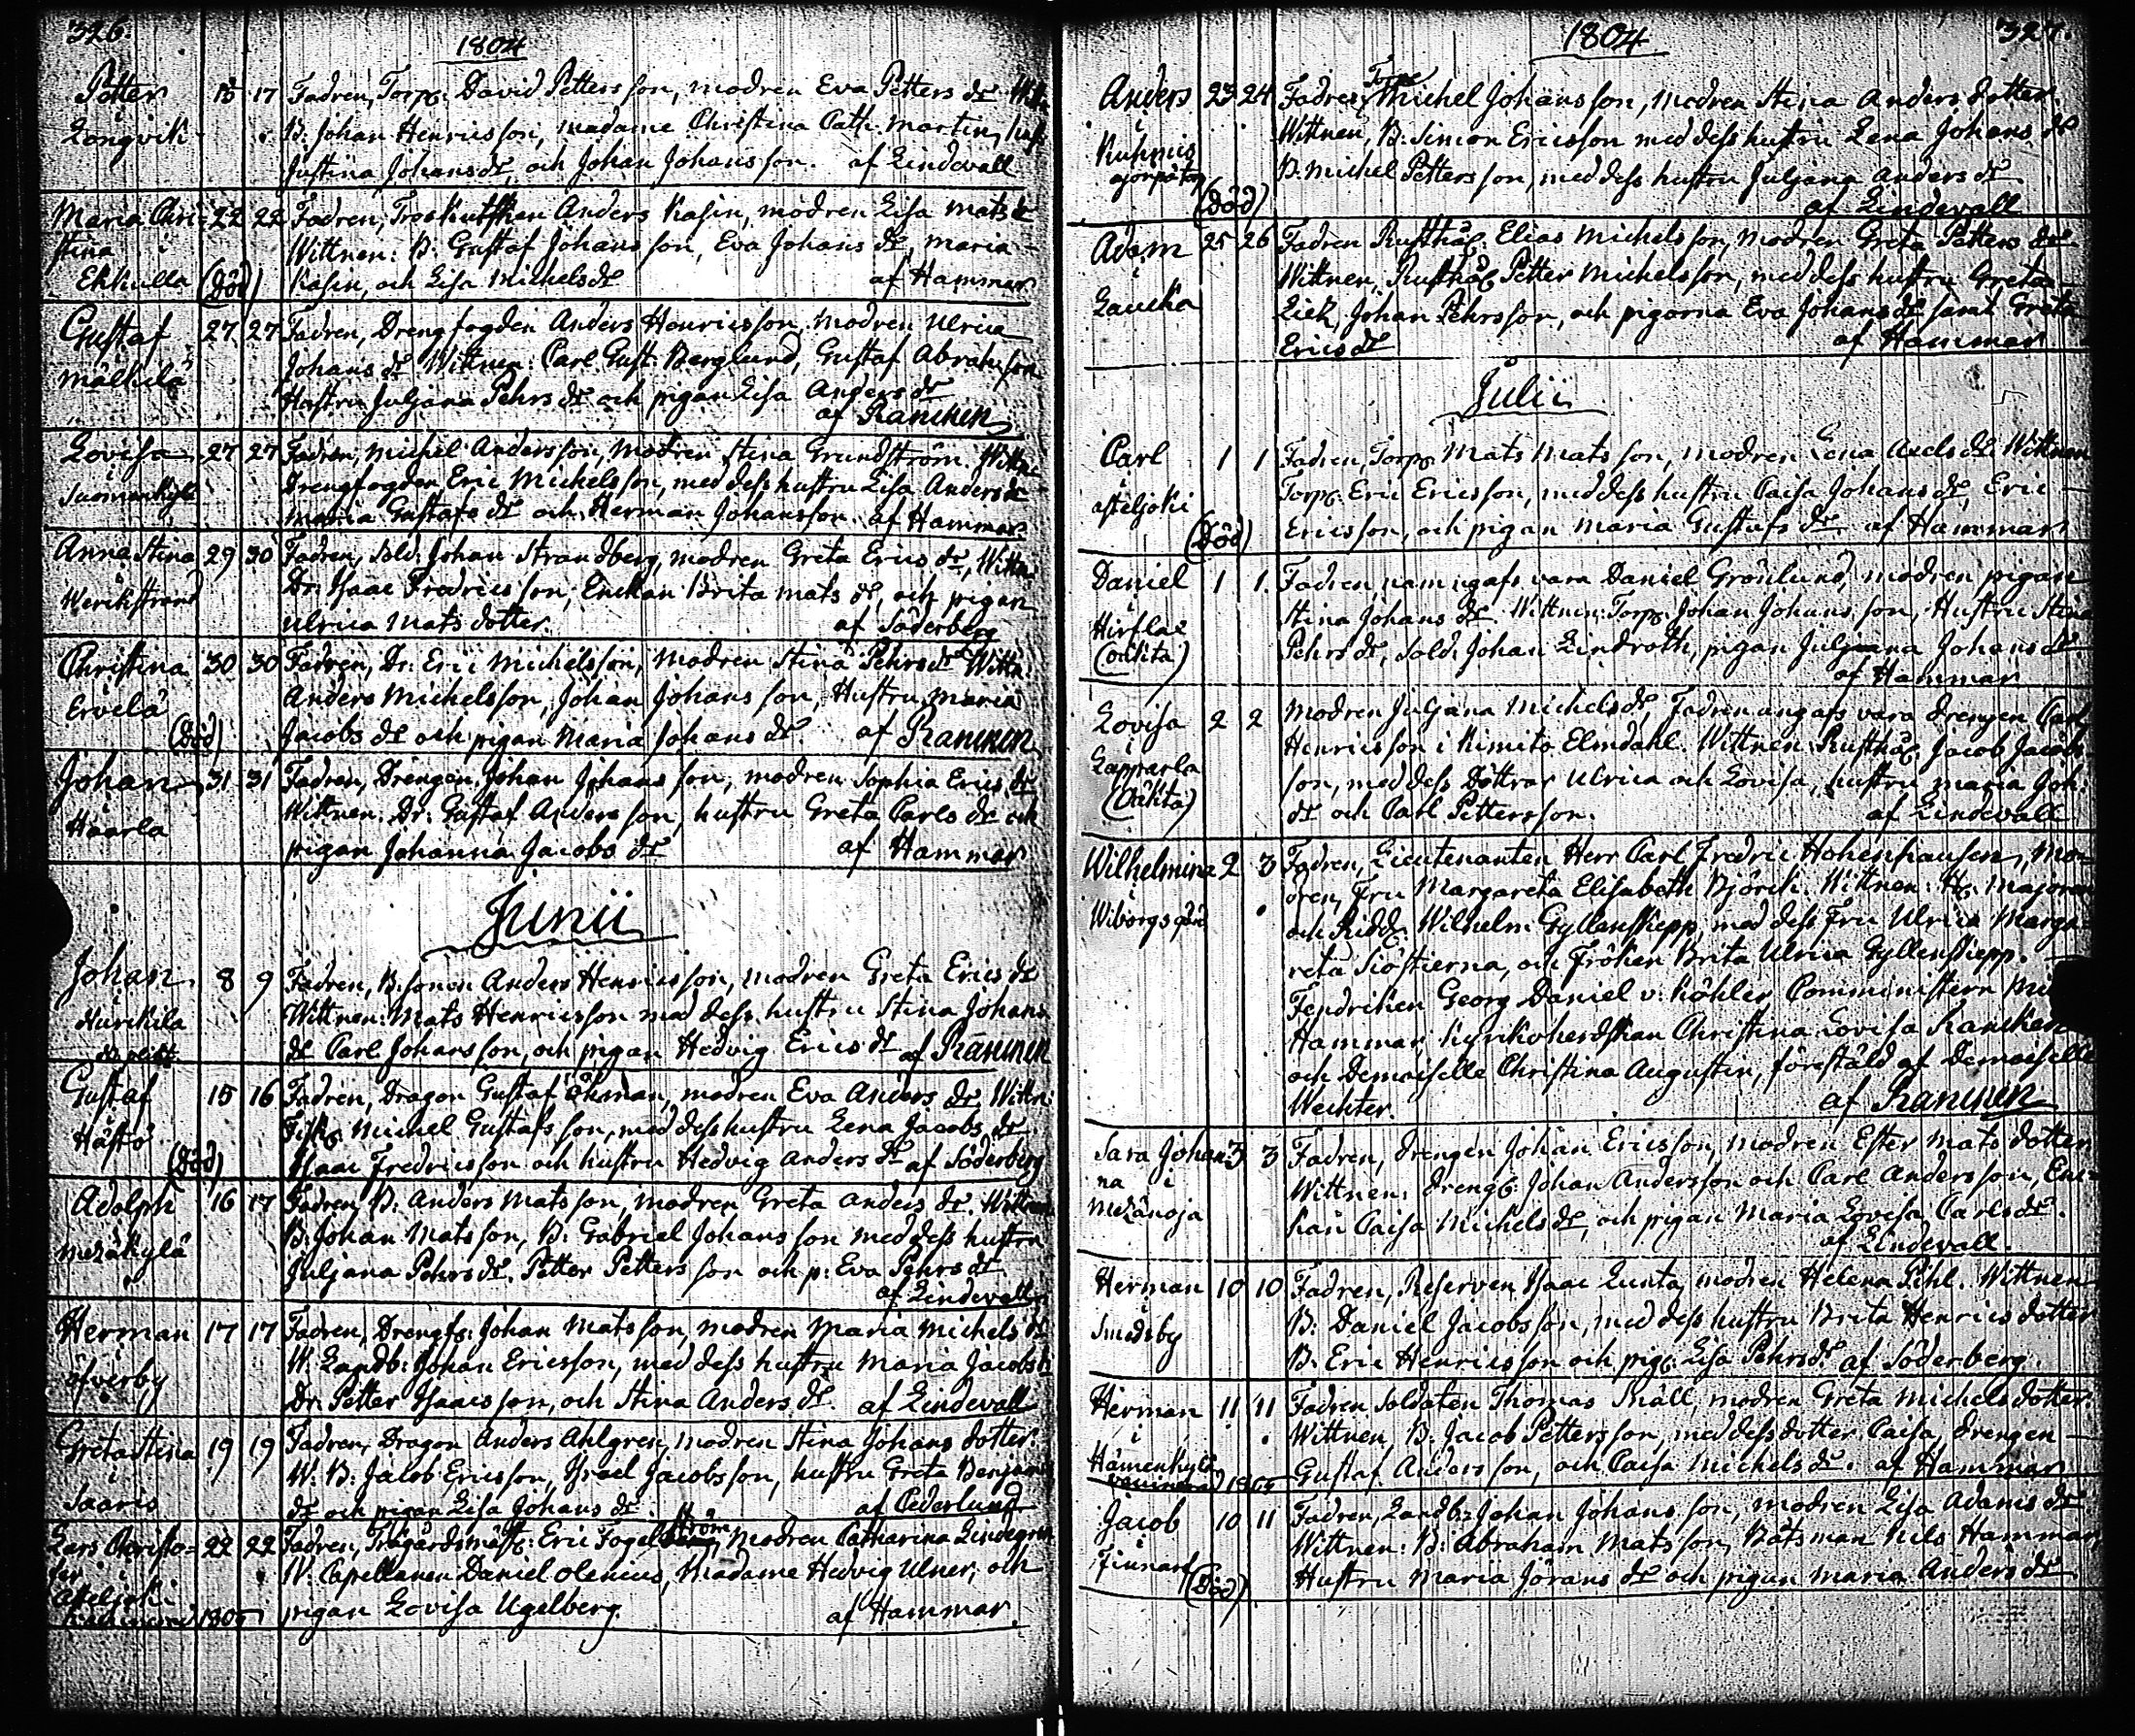 326.
1804
Petter 15 17 Fadren, Torp. David Petters son, modren Eva Petters dr Wittn.
Longvik B. Johan Henricsson, madame Christina Cath. Martin, hust.
Justina Johans dr, och Johan Johans son. af Lindevall
Maria Chri= 22 22 Fadren, Anders Kasin, modren Lisa Mats dr
stina i Wittnen: B: Gustaf Johans son, Eva Johans dr, Maria
Ekkulla (Död) Kasin, och Lisa Michels dr af Hammar
Gustaf 27 27 Fadren, Drengfogden Anders Henricsson, modren Ulrica
Mälkilä Johans dr Wittnen: Carl Gust. Berglund, Gustaf Abrahs son
Hustru Juljana Pehrs dr och pigan Lisa Anders dr
af Rancken
Lovisa 27 27 Fadren, Michel Andersson, Modren Stina Grundström. Wittn.
i Drengfogden Eric Michelsson, med dess hustru Lisa Anders dr
Maria Gustafs dr och Herman Johansson. af Hammar
Anna Stina 29 30 Fadren, Sold. Johan Strandberg, modren Greta Erics dr, Wittn.
i Dr. Isaac Fredrics son, Enckan Brita Mats dr, och pigan
Werikstrand Ulrica Mats dotter. af Söderberg
Christina 30 30 Fadren, Dr. Eric Michelsson, Modren Stina Pehrs dr Wittn.
Ervelä Anders Michelsson, Johan Johans son, Hustru Maria
(Död) Jacobs dr och pigan Maria Johans dr. af Rancken
Johan 31 31 Fadren, Drengen Johan Johans son, modren Sophia Erics dr
i Wittnen: Dr. Gustaf Anders son, hustru Greta Carls dr och
Haarla pigan Johanna Jacobs dr af Hammar
Junii
Johan 8 9 Fadren, B. sonen Anders Henricsson, modren Greta Erics dr
i Wittnen: Mats Henricsson med dess hustru Stina Johans
dr Carl Johans son, och pigan Hedvig Erics dr af Rancken
Gustaf 15 16 Fadren, Dragon Gustaf Öhman, modren Eva Anders dr, Wittn:
Hästö Michel Gustafs son, med dess hustru Lena Jacobs dr
(Död) Isaac Fredricsson och hustru Hedvig Anders dr af Söderberg
Adolph 16 17 Fadren, B. Anders Mats son, modren Greta Anders dr. Wittnen
i B. Johan Mats son, B. Gabriel Johans son med dess hustru
Meräkylä Juljana Pehrs dr. Petter Petters son och p: Eva Pehrs dr
af Lindevall
Herman 17 17 Fadren, Drengf: Johan Mats son, modren Maria Michels dr
i W. Landb: Johan Ericsson, med dess hustru Maria Jacobs dr
öfverby Dr. Petter Isaacs son, och Stina Anders dr. af Lindevall
Greta Stina 19 19 Fadren, Dragon Anders Ahlgren, modren Stina Johans dotter.
i W. B. Jacob Ericsson, Israel Jacobsson, hustru Greta Benjam.
Saaris dr och pigan Lisa Johans dr af Cederlund
Lars Christo= 22 22 Fadren, Trägårdsmäst: Eric Fogelström, modren Catharina Lindegren
fer i W. Capellanen Daniel Olenius, Madame Hedvig Ulner, och
Asteljoki 1805 pigan Lovisa Ugelberg. af Hammar.
1804
327.
Anders 23 24 Fadren, Torp Michel Johansson, Modren Stina Anders dotter.
i Wittnen, B: Simon Ericsson med dess hustru Lena Johans dr
B. Michel Petters son, med dess hustru Juljana Anders dr.
(död) af Lindevall
Adam 25 26 Fadren Rusthål. Elias Michels son, Modren Greta Petters dr
i Wittnen, Rusthål. Petter Michels son, med dess hustru Greta
Laucka Johan Pehrsson, och pigorna Eva Johans dr samt Greta
Erics dr af Hammar
Julii
Carl 1 1 Fadren, Torp. Mats Mats son, modren Lena Axels dr. Wittnen
i Torp. Eric Ericsson, med dess hustru Caisa Johans dr, Eric
asteljoki (Död) Ericsson, och pigan Maria Gustafs dr. af Hammar
Daniel 1 1. Fadren namngafs vara Daniel Grönlund, modren pigan
i Stina Johans dr. Wittnen: Torp. Johan Johans son, Hustru Stina
Hirslax Pehrs dr, Sold. Johan Lindroth, pigan Juljana Johans dr
(oäkta) af Hammar
Lovisa 2 2 Modren Juljana Michels dr, Fadren angafs vara drengen Carl
i Henricsson i Kimito Elmdahl. Wittnen Rusthål. Jacob Jacobs
Lapparla son, med dess Döttrar Ulrica och Lovisa, hustru Maria Joh.
(Oäkta) dr och Carl Pettersson. af Lindevall
Wilhelmina 2 3 Fadren, Lieutenanten Herr Carl Fredric Hohenhausen, Mo=
i dren, Fru Margareta Elisabeth Björck. Wittnen: H. Majoren
Wiborgsgård och Ridd. Wilhelm Gyllenskepp, med dess Fru Ulrica Marga
reta Siöstierna, och Fröken Brita Ulrica Gyllenskepp.
Fendriken Georg Daniel v. Köhler, Comministern
Hammar, kyrkoherdskan Christina Lovisa Rancken
och Demoiselle Christina Augustin, förestäld af Demoiselle
Wechter. af Rancken
Sara Johan= 3 3 Fadren, drengen Johan Ericsson, modren Ester Mats dotter
na i Wittnen: drengf: Johan Andersson och Carl Andersson, Enc=
Meränoja kan Caisa Michels dr, och pigan Maria Lovisa Carls dr.
af Lindevall.
Herman 10 10 Fadren, Reserven Isaac Lunta, modren Helena Pihl. Wittnen
i B: Daniel Jacobsson, med dess hustru Brita Henrics dotter
Smedsby B. Eric Henricsson och pig. Lisa Pehrs dr. af Söderberg.
Herman 11 11 Fadren Soldaten Thomas Snäll, modren Greta Michels dotter.
i Wittnen B. Jacob Petters son, med dess dotter Caisa, drengen
Hämenkylä Gustaf Anders son, och Caisa Michels dr. af Hammar
Jacob 10 11 Fadren, Landb: Johan Johans son, modren Lisa Adams dr
i Wittnen: B: Abraham Mats son, Båtsman Nils Hammar,
Finnar (Död) Hustru Maria Jörans dr och pigan Maria Anders dr